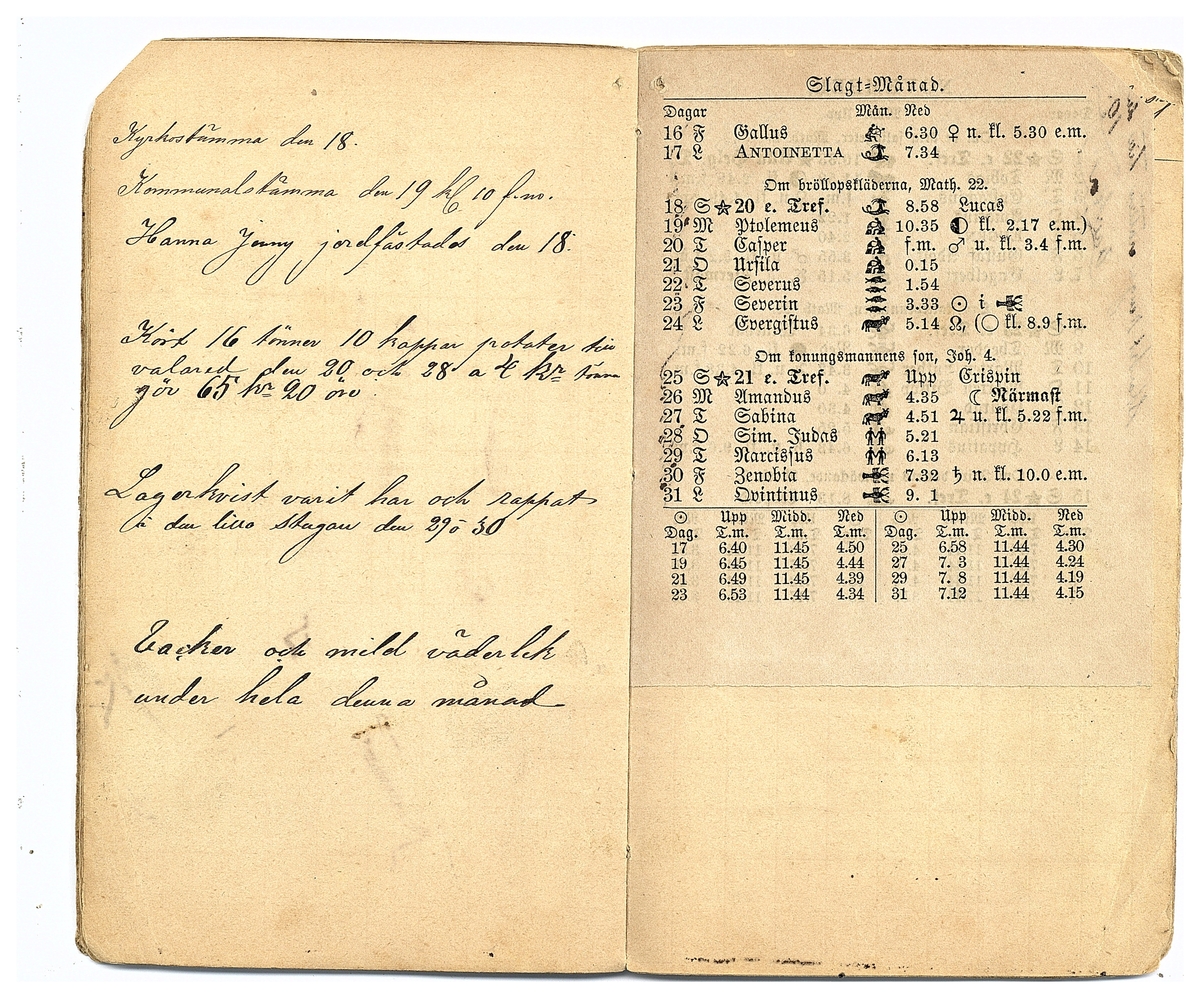 Kyrkostämma den 18.
Kommunalstämma den 19 kl 10 f.m.
Hanna Jenny jordfästades den 18.
Kört 16 tönner 10 kappar potater till
valared den 20 och 28 a 4 kr tönn
gör 65 kr 20 öre
Lagerkvist varit här och rappat
i den lilla stugan den 29 o 30
Vacker och mild väderlek
under hela denna månad
Slagt-Månad.
Dagar Mån. Ned
16 F Gallus 6.30 ♀ n. kl. 5.30 e.m.
17 L ANTOINETTA 7.34
Om bröllopskläderna, Math. 22.
18 S ☆ 20 e. Tref. 8.58 Lucas
19 M Ptolemeus 10.35 ◐ kl. 2.17 e.m.)
20 T Casper f.m. ♂ u. kl. 3.4 f.m.
21 O Ursila 0.15
22 T Severus 1.54
23 F Severin 3.33 ☉ i
24 L Evergistus 5.14 ☊, (○ kl. 8.9 f.m.
Om konungsmannens son, Joh. 4.
25 S ☆ 21 e. Tref. Upp Crispin
26 M Amandus 4.35 ☾ Närmast
27 T Sabina 4.51 ♃ u. kl. 5.22 f.m.
28 O Sim. Judas 5.21
29 T Narcissus 6.13
30 F Zenobia 7.32 ♄ n. kl. 10.0 e.m.
31 L Qvintinus 9. 1
☉ Upp Midd. Ned ☉ Upp Midd. Ned
Dag. T.m. T.m. T.m. Dag. T.m. T.m. T.m.
17 6.40 11.45 4.50 25 6.58 11.44 4.30
19 6.45 11.45 4.44 27 7. 3 11.44 4.24
21 6.49 11.45 4.39 29 7. 8 11.44 4.19
23 6.53 11.44 4.34 31 7.12 11.44 4.15